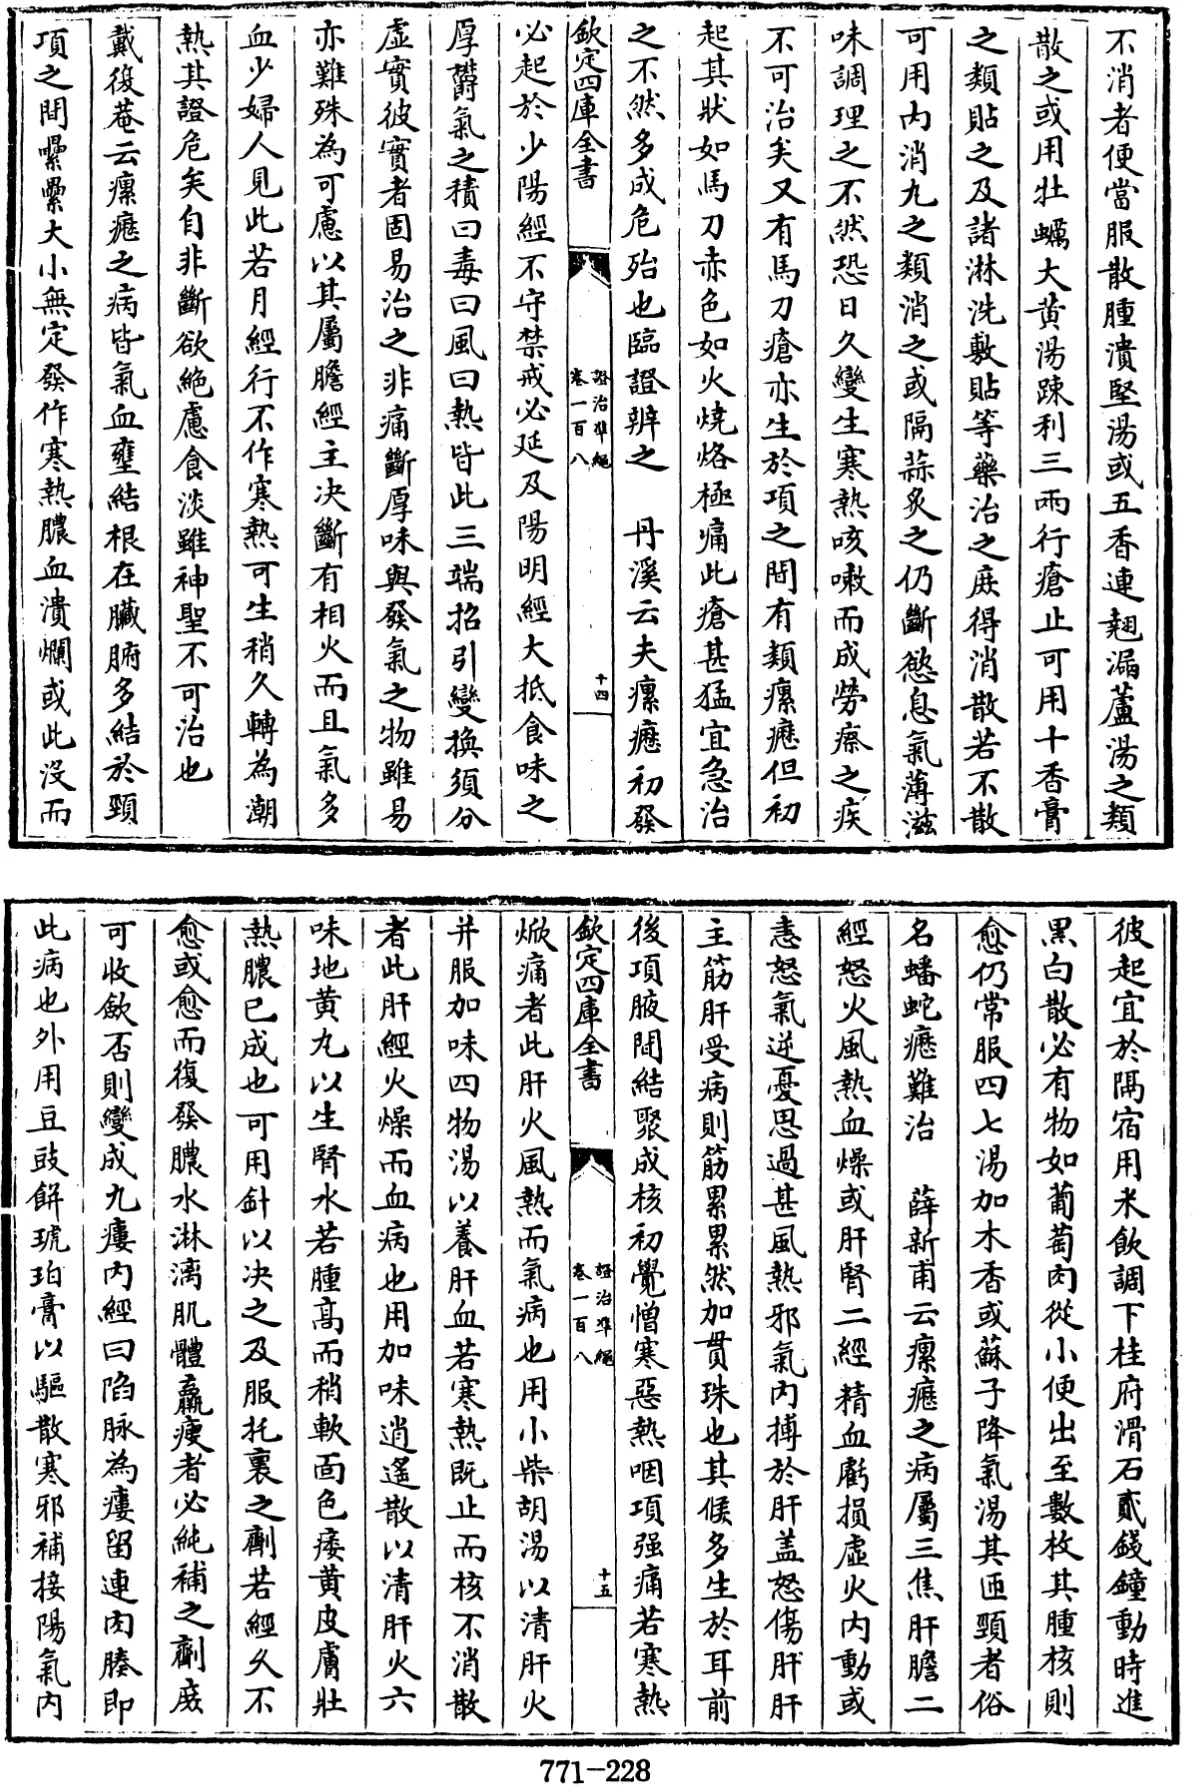 不消者便當服散腫潰堅湯或五香連翹漏蘆湯之類
散之或用牡蠣大黄湯踈利三兩行瘡止可用十香膏
之類貼之及諸淋洗敷貼等藥治之庶得消散若不散
可用内消丸之類消之或隔蒜炙之仍斷慾息氣薄滋
味調理之不然恐日久變生寒熱咳嗽而成勞瘵之疾
不可治矣又有馬刀瘡亦生於項之間有類瘰癧但初
起其狀如馬刀赤色如火燒烙極痛此瘡甚猛宜急治
之不然多成危殆也臨證辨之　丹溪云夫瘰癧初發
欽定四庫全書
證治準繩
卷一百八
十四
必起於少陽經不守禁戒必延及陽明經大抵食味之
厚欝氣之積曰毒曰風曰熱皆此三端招引變換須分
虚實彼實者固易治之非痛斷厚味與發氣之物雖易
亦難殊為可慮以其屬膽經主決斷有相火而且氣多
血少婦人見此若月經行不作寒熱可生稍久轉為潮
熱其證危矣自非斷欲絶慮食淡雖神聖不可治也
戴復菴云瘰癧之病皆氣血壅結根在臟腑多結於頸
項之間㬥㬥大小無定發作寒熱膿血潰爛或此没而
彼起宜於隔宿用米飲調下桂府滑石貳錢鐘動時進
黒白散必有物如葡萄肉從小便出至數枚其腫核則
愈仍常服四七湯加木香或蘇子降氣湯其匝頸者俗
名蟠蛇癧難治　薛新甫云瘰癧之病屬三焦肝膽二
經怒火風熱血燥或肝腎二經精血虧損虚火内動或
恚怒氣逆憂思過甚風熱邪氣内搏於肝盖怒傷肝肝
主筋肝受病則筋累累然如貫珠也其候多生於耳前
後項腋間結聚成核初覺憎寒惡熱咽項强痛若寒熱
欽定四庫全書
證治準繩
卷一百八
十五
焮痛者此肝火風熱而氣病也用小柴胡湯以清肝火
并服加味四物湯以養肝血若寒熱既止而核不消散
者此肝經火燥而血病也用加味逍遥散以清肝火六
味地黄丸以生腎水若腫高而稍軟面色痿黄皮膚壯
熱膿已成也可用針以決之及服托裏之劑若經久不
愈或愈而復發膿水淋漓肌體羸瘦者必純補之劑庶
可收歛否則變成九瘻内經曰陷脉為瘻留連肉腠即
此病也外用豆豉餅琥珀膏以驅散寒邪補接陽氣内
771-228